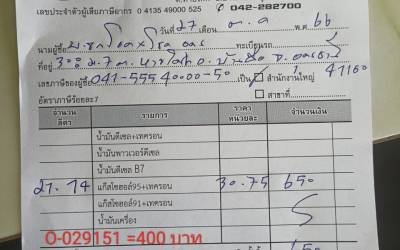 เลขประจำตัวผู้เสียภาษีอากร 0 4135 49000 525 042-282700
วันที่ 27 เดือน ต.ค พ.ศ. 66
นามผู้ซื้อ ทะเบียนรถ
ที่อยู่ 41160
เลขภาษีของผู้ซื้อ 041-555 40000-50 เป็น สำนักงานใหญ่
อัตราภาษีร้อยละ7 สาขาที่
จำนวนลิตร รายการ ราคาหน่วยละ จำนวนเงิน
น้ำมันดีเซล+เทครอน
น้ำมันพาวเวอร์ดีเซล
น้ำมันดีเซล B7
21.14 แก๊สโซฮอล์95+เทครอน 30.75 650
แก๊สโซฮอล์91+เทครอน
น้ำมันเครื่อง
O-029151 =400 บาท